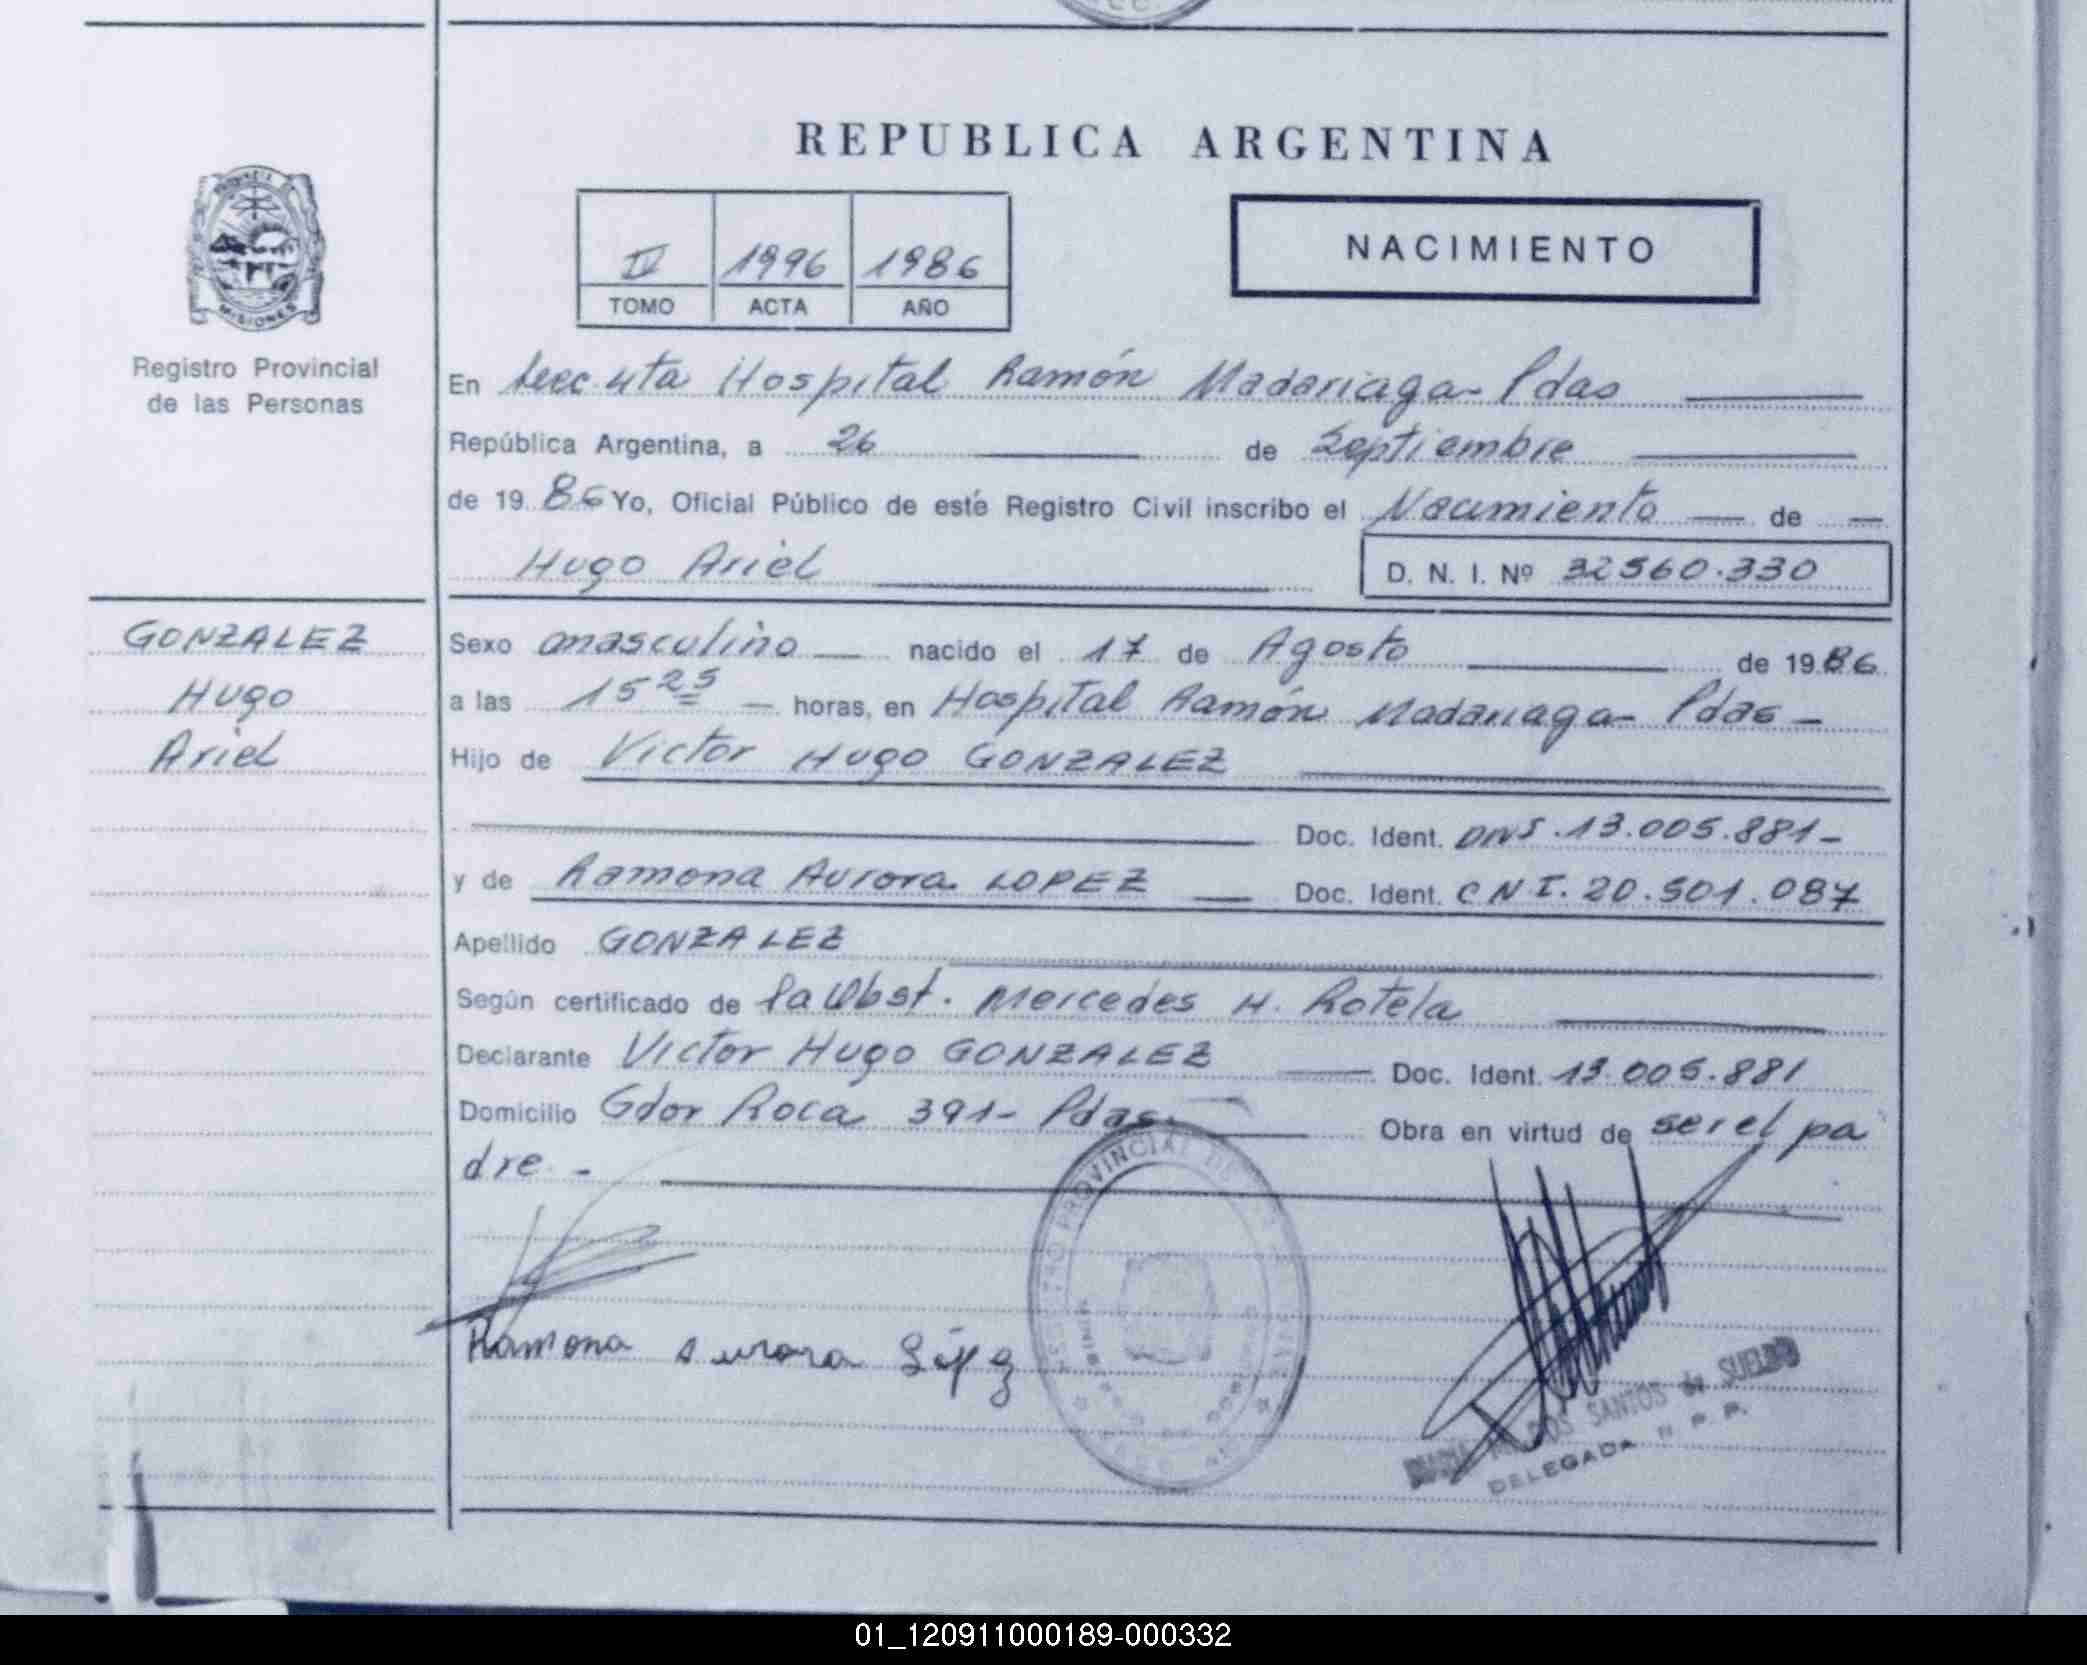 REPUBLICA ARGENTINA
IV 1996 1986
TOMO ACTA AÑO
NACIMIENTO
MISIONES
Registro Provincial
de las Personas
En Secc. 4ta Hospital Ramón Madariaga - Pdas
República Argentina, a 26 de Septiembre
de 19 86 Yo, Oficial Público de este Registro Civil inscribo el Nacimiento de
Hugo Ariel D. N. I. Nº 32560.330
GONZALEZ
Hugo
Ariel
Sexo masculino nacido el 17 de Agosto de 19 86
a las 15 25 horas, en Hospital Ramón Madariaga - Pdas -
Hijo de Victor Hugo GONZALEZ
Doc. Ident. DNI. 13.005.881-
y de Ramona Aurora LOPEZ Doc. Ident. CNI. 20.501.087
Apellido GONZALEZ
Según certificado de la Obst. Mercedes H. Rotela
Declarante Victor Hugo GONZALEZ Doc. Ident. 13.005.881
Domicilio Gdor Roca 391- Pdas. Obra en virtud de ser el pa
dre. -
REGISTRO PROVINCIAL DE LAS PERSONAS
MINISTERIO DE GOBIERNO
Ramona Aurora López
DOS SANTOS de SUELDO
DELEGADA R. P. P.
01_120911000189-000332